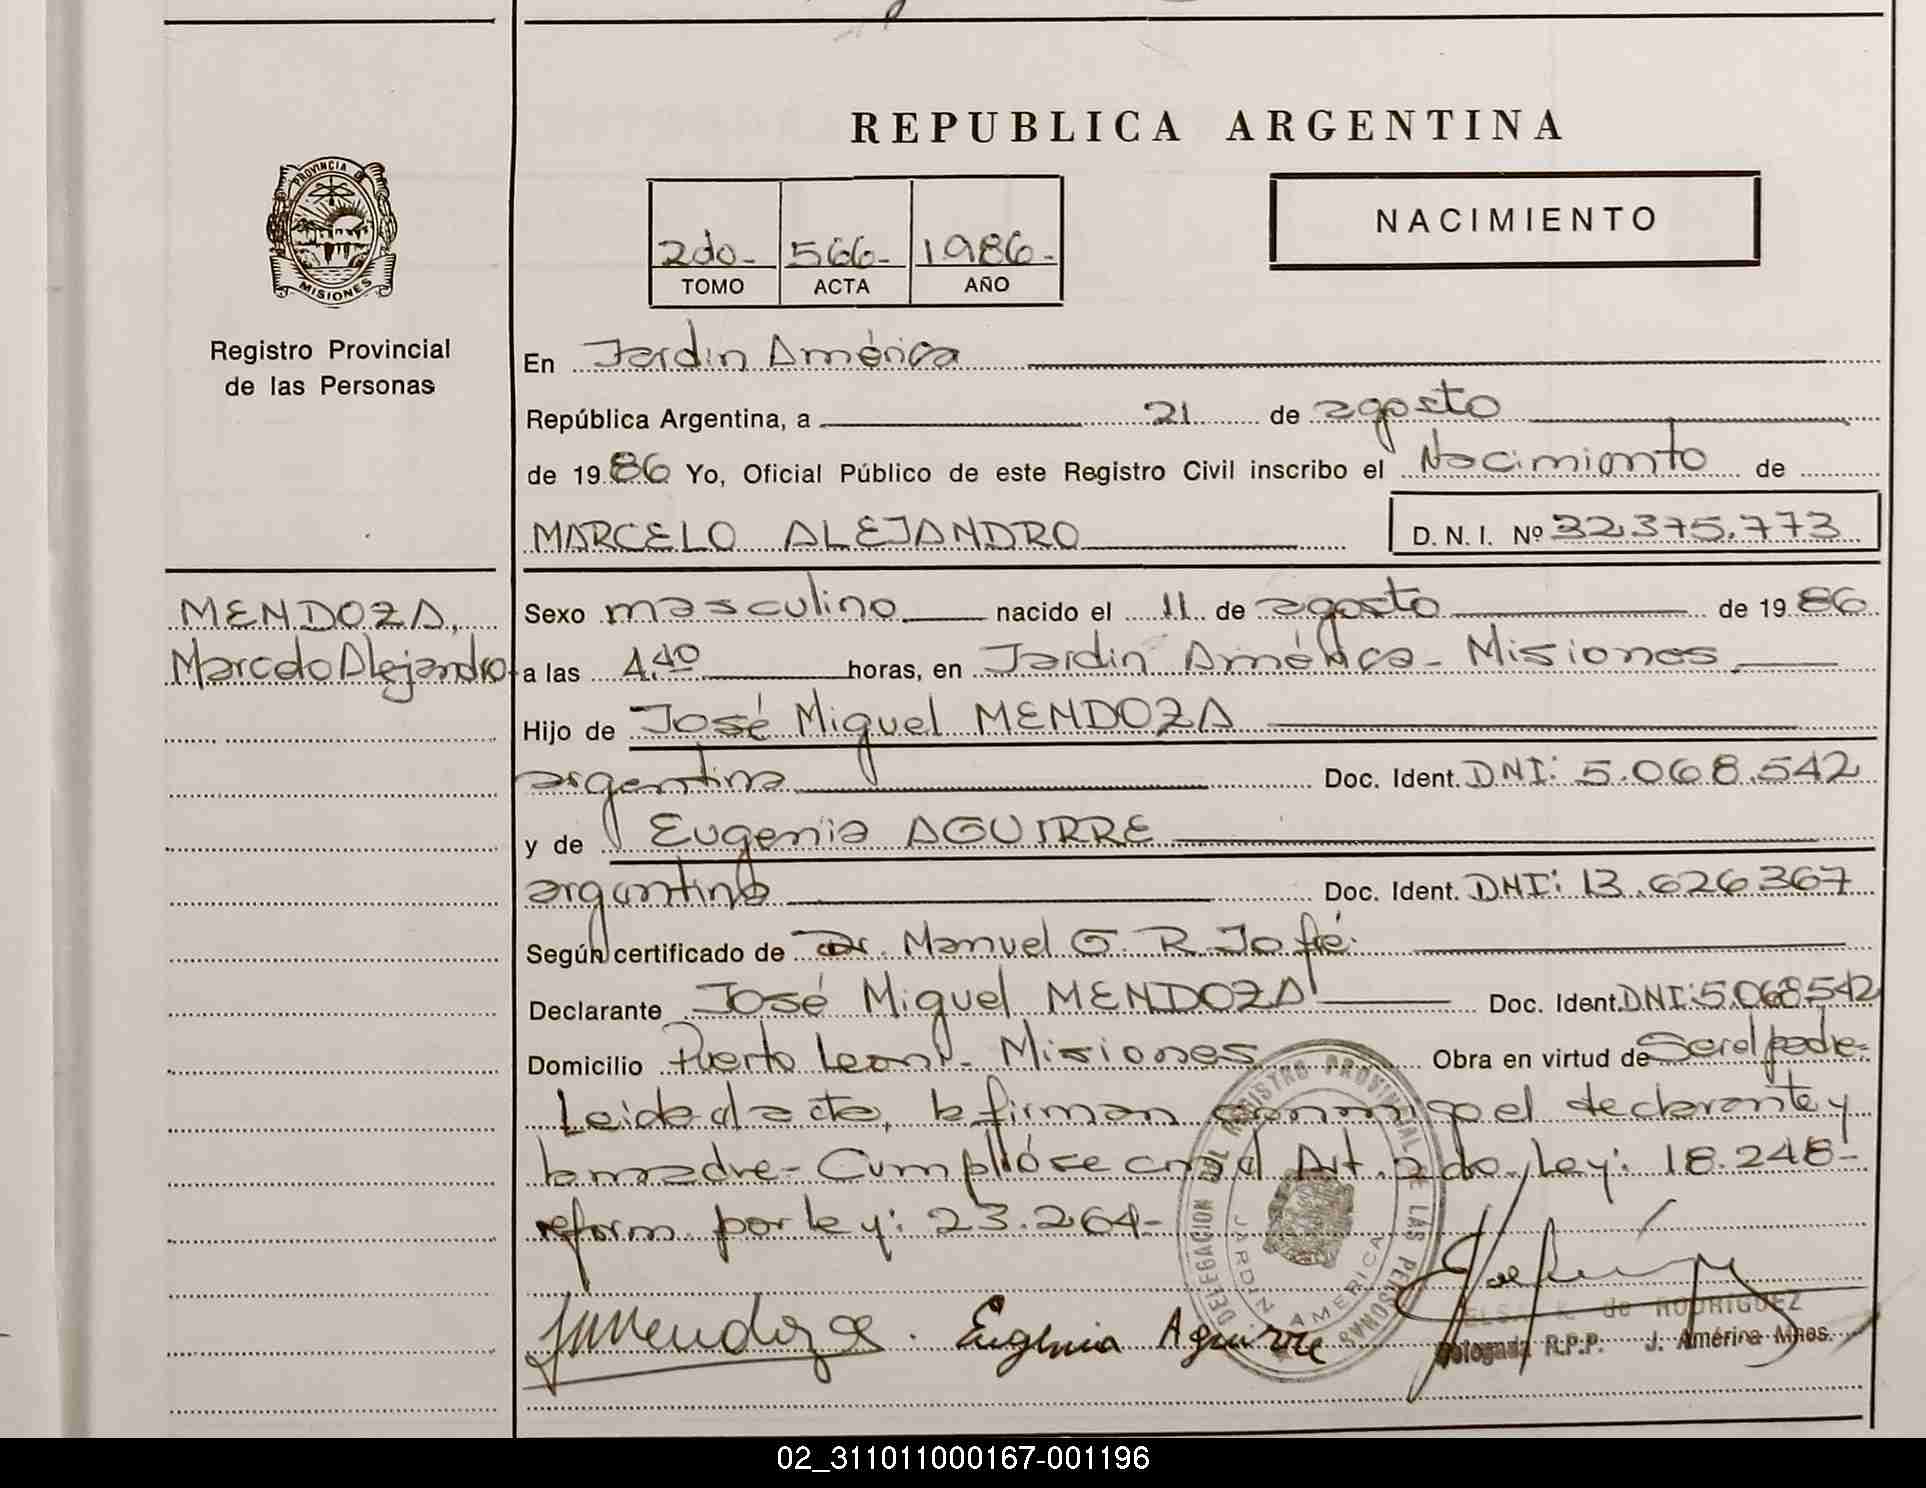 REPUBLICA ARGENTINA
PROVINCIA DE
MISIONES
Registro Provincial
de las Personas
2do- 566- 1986-
TOMO ACTA AÑO
NACIMIENTO
En Jardin América
República Argentina, a 21 de agosto
de 1986 Yo, Oficial Público de este Registro Civil inscribo el Nacimiento de
MARCELO ALEJANDRO D. N. I. Nº 32.375.773
MENDOZA,
Marcelo Alejandro
Sexo masculino nacido el 11 de agosto de 1986
a las 4.40 horas, en Jardin América - Misiones
Hijo de José Miguel MENDOZA
argentina Doc. Ident. DNI: 5.068.542
y de Eugenia AGUIRRE
argentina Doc. Ident. DNI: 13.626367
Según certificado de Dr. Manuel G. R. Jofré.
Declarante José Miguel MENDOZA Doc. Ident. DNI: 5.068542
Domicilio Puerto Leoni - Misiones Obra en virtud de Ser el padre-
Leida el acta, la firman conmigo el declarante y
la madre - Cumplióse con el Art. 2do. Ley: 18.248-
reform. por ley: 23.264-
DELEGACION DEL REGISTRO PROVINCIAL DE LAS PERSONAS
JARDIN AMERICA
JMMendoza. Eugenia Aguirre
de RODRIGUEZ
Delegada R.P.P. J. América Mnes.
02_311011000167-001196